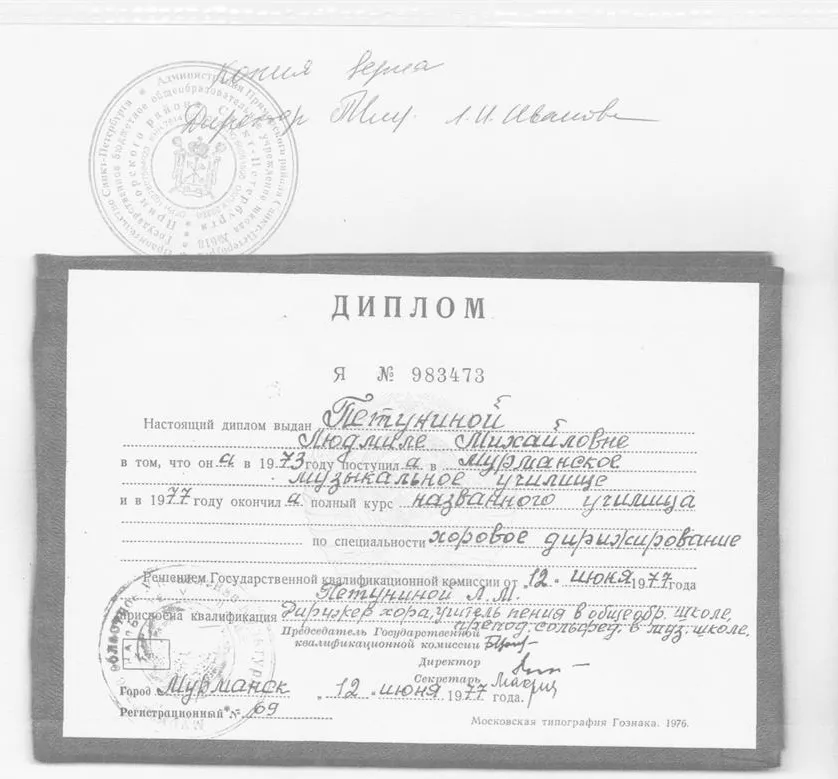 Копия верна
Директор Л.И. Иванова
Администрация Приморского района Санкт-Петербурга
Государственное бюджетное общеобразовательное учреждение школа №618
Приморского района Санкт-Петербурга
ДИПЛОМ
Я № 983473
Настоящий диплом выдан Петуниной
Людмиле Михайловне
в том, что он а в 1973 году поступил а в Мурманское
музыкальное училище
и в 1977 году окончил а полный курс названного училища
по специальности хоровое дирижирование
Решением Государственной квалификационной комиссии от 12 июня 1977 года
Петуниной Л.М.
присвоена квалификация Дирижер хора, учитель пения в общеобр. школе,
препод. сольфед. в муз. школе.
Председатель Государственной
квалификационной комиссии
Директор
Секретарь
Город Мурманск 12 июня 1977 года.
Регистрационный № 69
Московская типография Гознака. 1976.